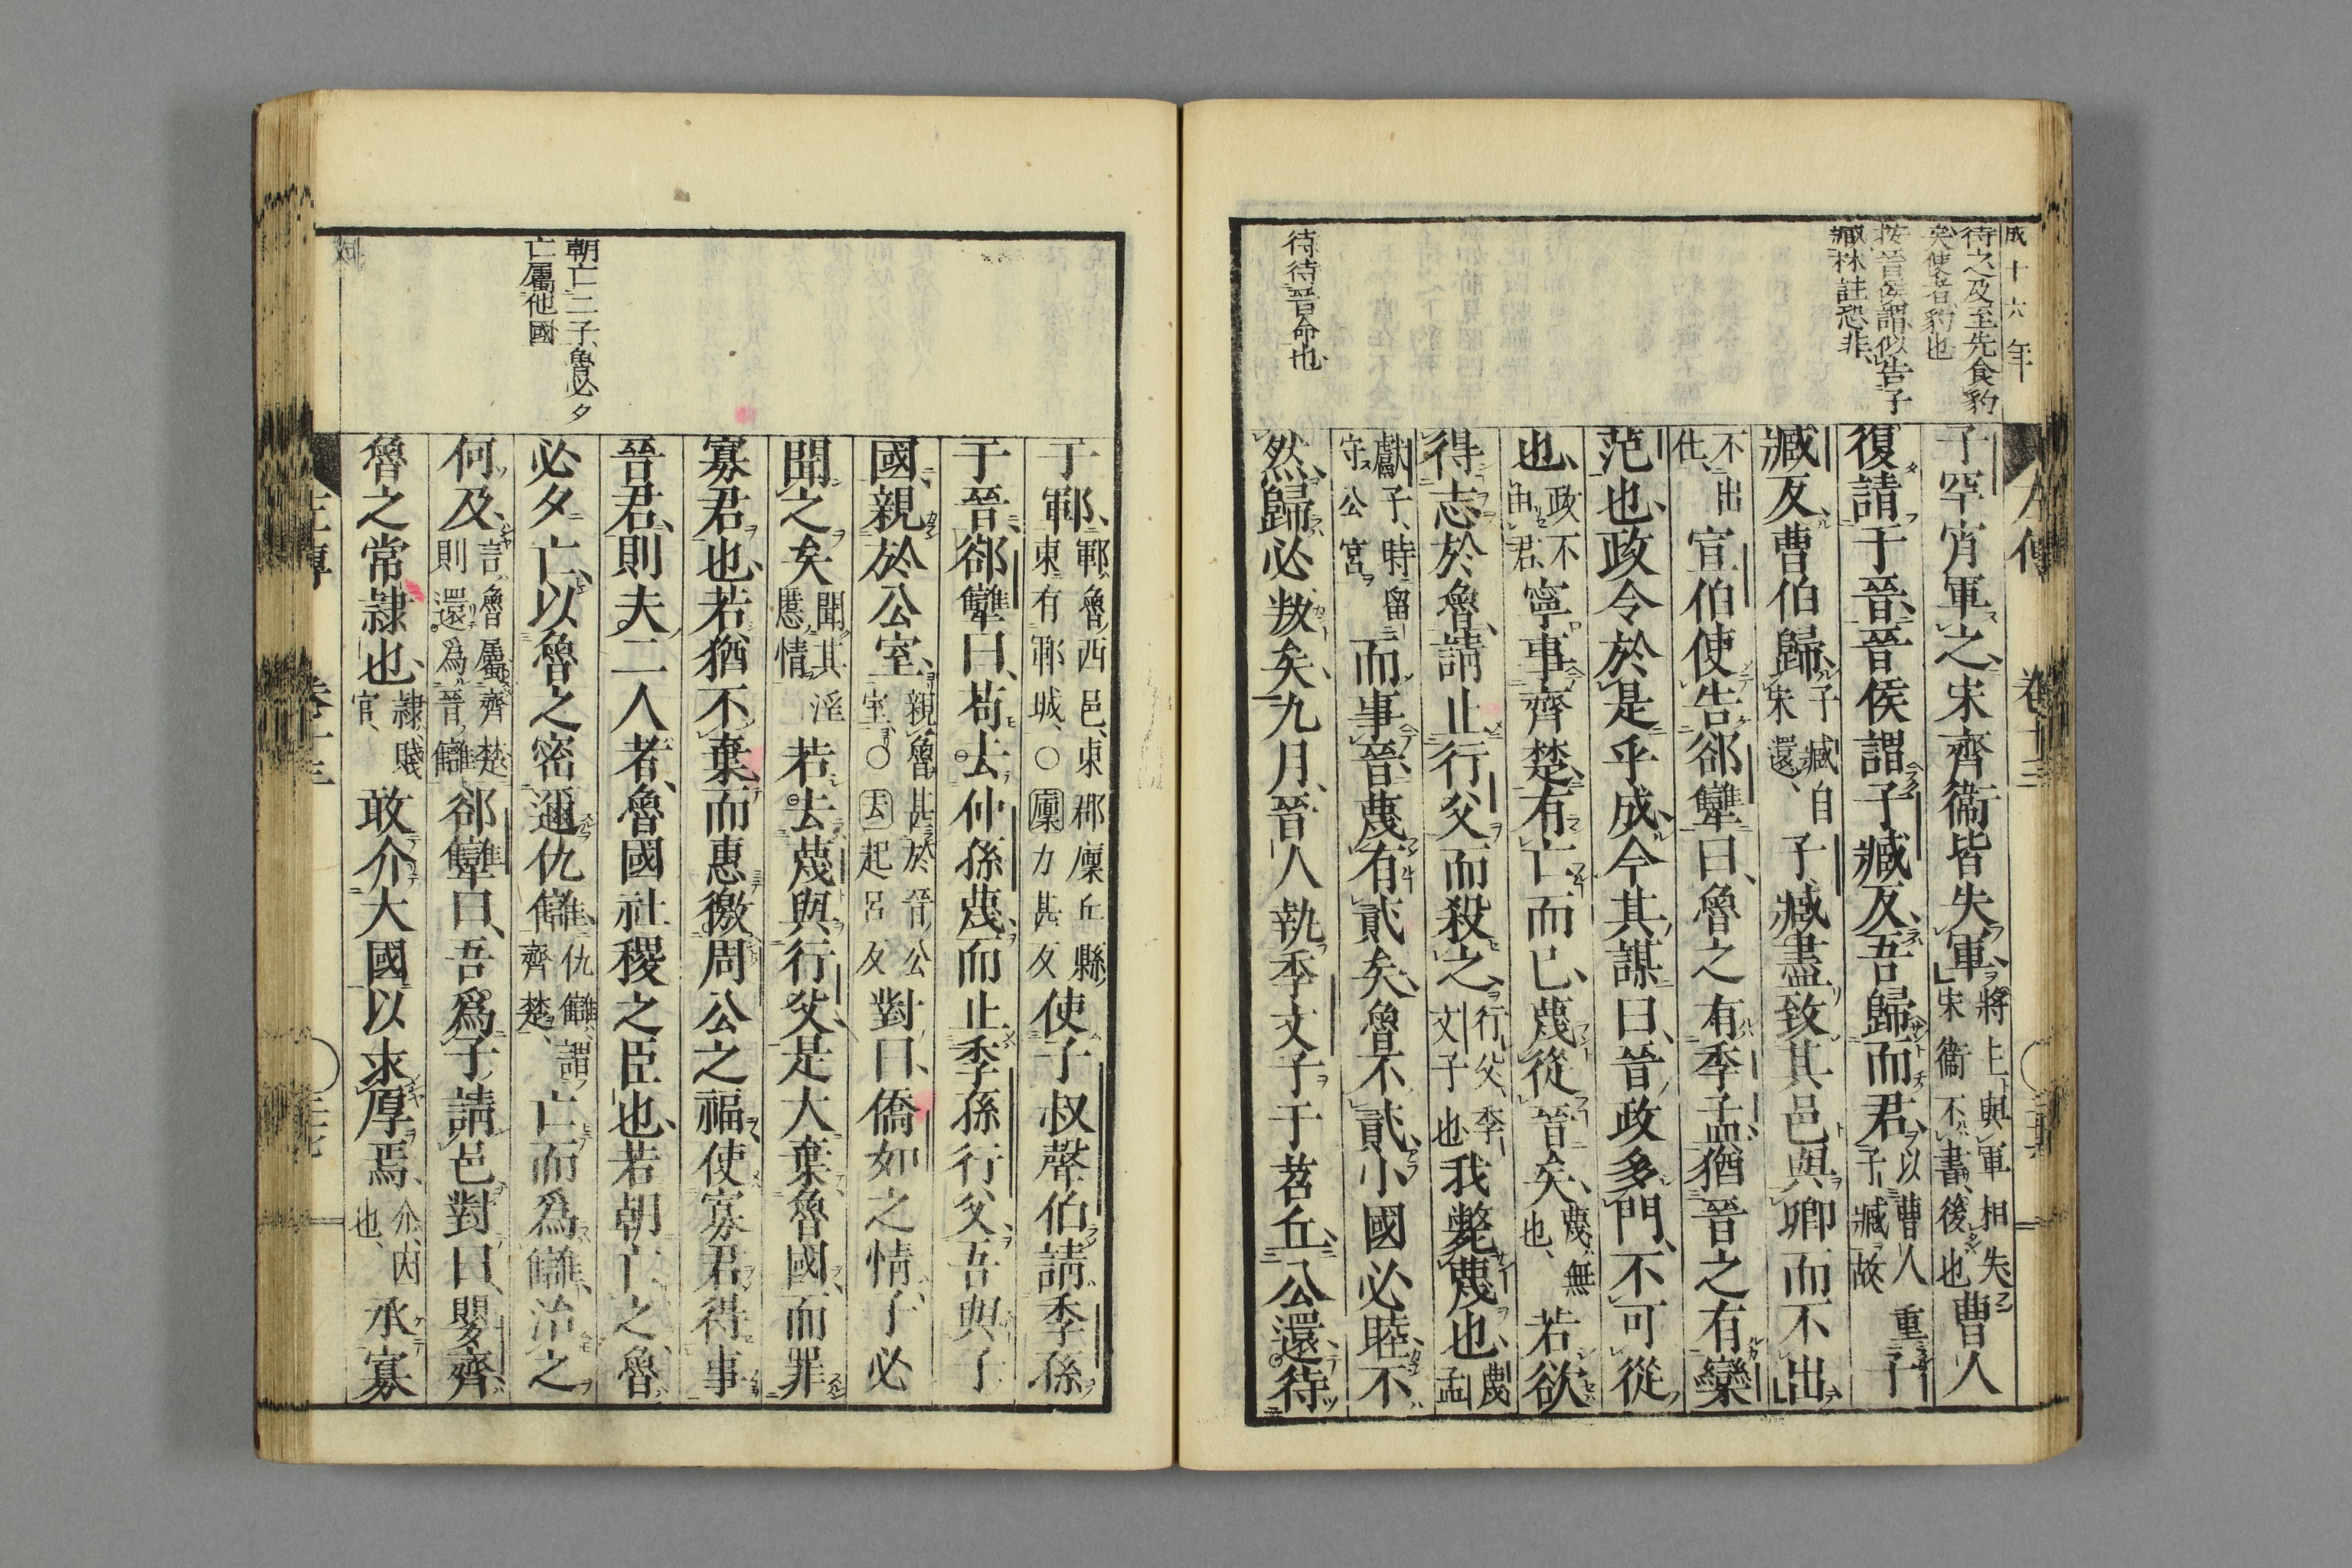 成十六年
待之及至先食豹
矣使者豹也
按晉侯謂似告子
臧林註恐非
待待晉命也
子罕宵軍之宋齊衞皆失軍將上與軍相失宋衞不書後也曹人
復請于晉晉侯謂子臧反吾歸而君以曹人重子臧故子
臧反曹伯歸子臧自宋還子臧盡致其邑與卿而不出
不出仕宣伯使告郤犫曰魯之有季孟猶晉之有欒
范也政令於是乎成今其謀曰晉政多門不可從
也政不由君寧事齊楚有亡而已蔑從晉矣蔑無也若欲
得志於魯請止行父而殺之行父季文子也我斃蔑也蔑孟
獻子時留守公宮而事晉蔑有貳矣魯不貳小國必睦不
然歸必叛矣九月晉人執季文子于苕丘公還待
朝亡二子魯必夕
亡屬他國
于鄆鄆魯西邑東郡廩丘縣東有鄆城○廩力甚反使子叔聲伯請季孫
于晉郤犫曰苟去仲孫蔑而止季孫行父吾與子
國親於公室親魯甚於晉公室○去起呂反對曰僑如之情子必
聞之矣聞其淫慝情若去蔑與行父是大棄魯國而罪
寡君也若猶不棄而惠徼周公之福使寡君得事
晉君則夫二人者魯國社稷之臣也若朝亡之魯
必夕亡以魯之密邇仇讎仇讎謂齊楚亡而爲讎治之
何及言魯屬齊楚則還爲晉讎郤犫曰吾爲子請邑對曰嬰齊
魯之常隷也隷賤官敢介大國以求厚焉介因也承寡